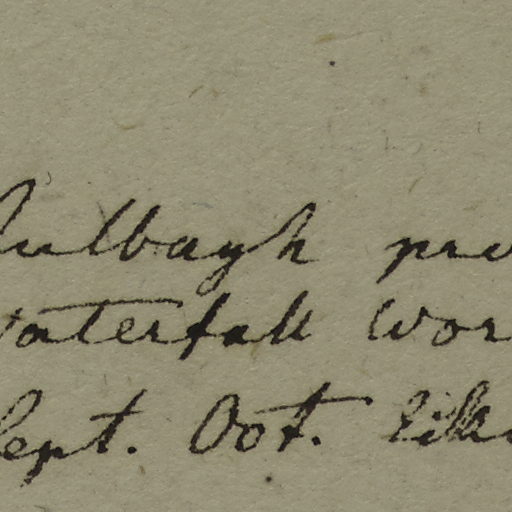 Tulbagh pro
Waterfall Wor
Sept. Oct. like